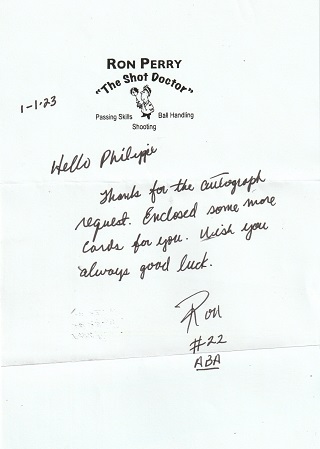 RON PERRY
"The Shot Doctor"
Passing Skills Ball Handling
Shooting
1-1-23
Hello Philippe
Thanks for the autograph
request. Enclosed some more
cards for you. Wish you
always good luck.
Ron
#22
ABA